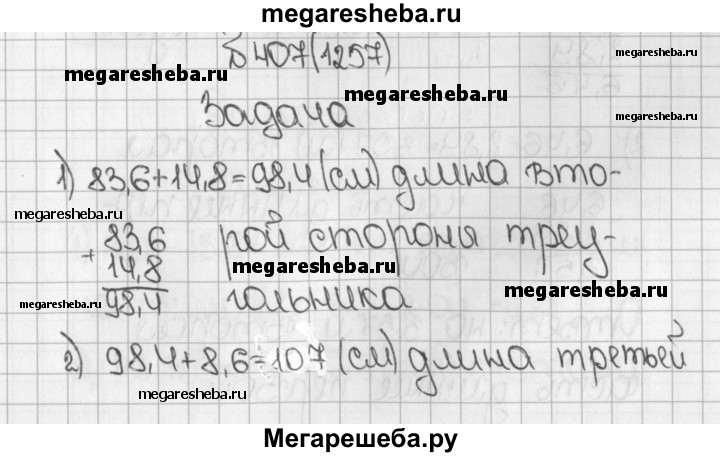 megaresheba.ru
№ 407(1257)
megaresheba.ru
megaresheba.ru
Задача
1) 83,6+14,8=98,4 (см) длина вто-
megaresheba.ru
83,6 рой стороны треу-
+
14,8
megaresheba.ru
megaresheba.ru
megaresheba.ru
98,4 гольника
2) 98,4+8,6=107 (см) длина третьей
megaresheba.ru
Мегарешеба.ру